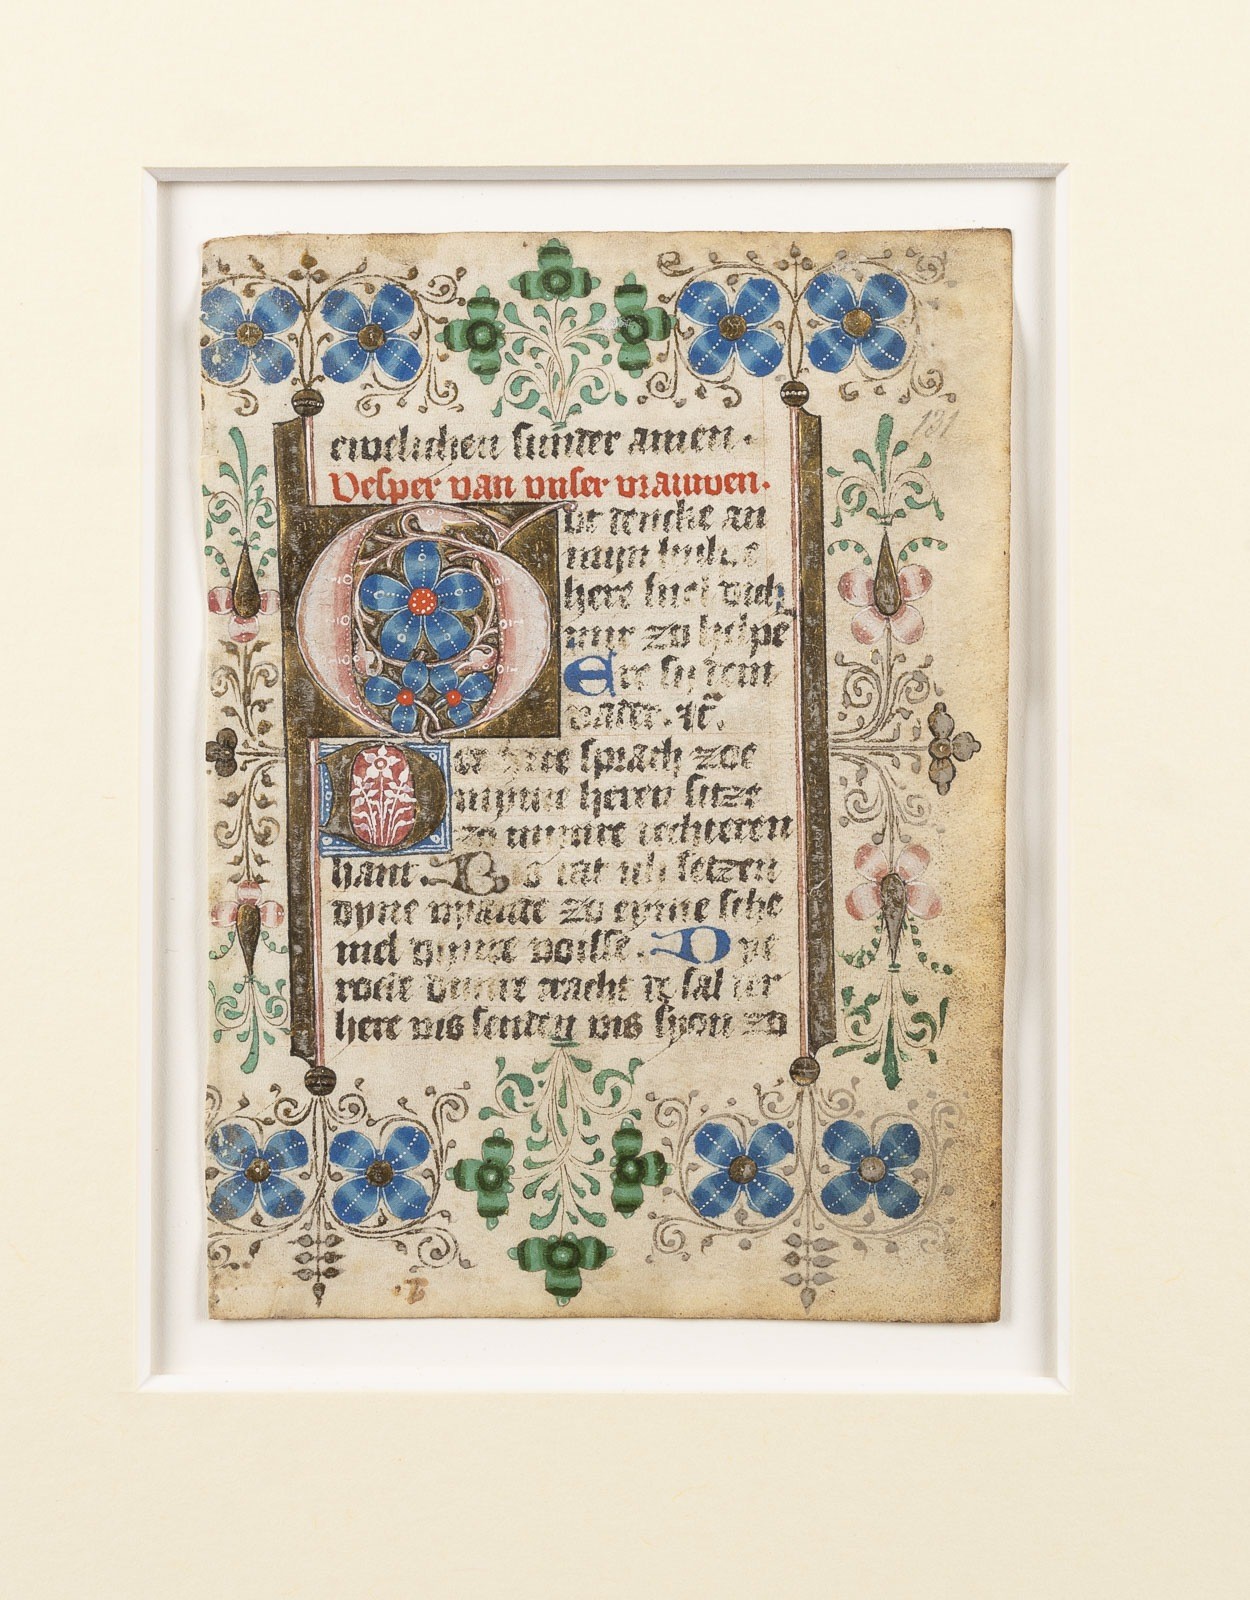 ewelichen sunder amen.
Vesper van unser vrauwen.
Got dencke an
myn hulpe
here snel dich
myr zo helpē
Ere sy dem
vader. ꝛc̄.
De here sprach zoe
myme heren sitze
zo mynre rechteren
hant. Bis dat ich setzen
dyne vyande zo eyme sche
mel dynre voisse. Dye
roede dynre cracht is sal der
here uis senden uis syon zo
131